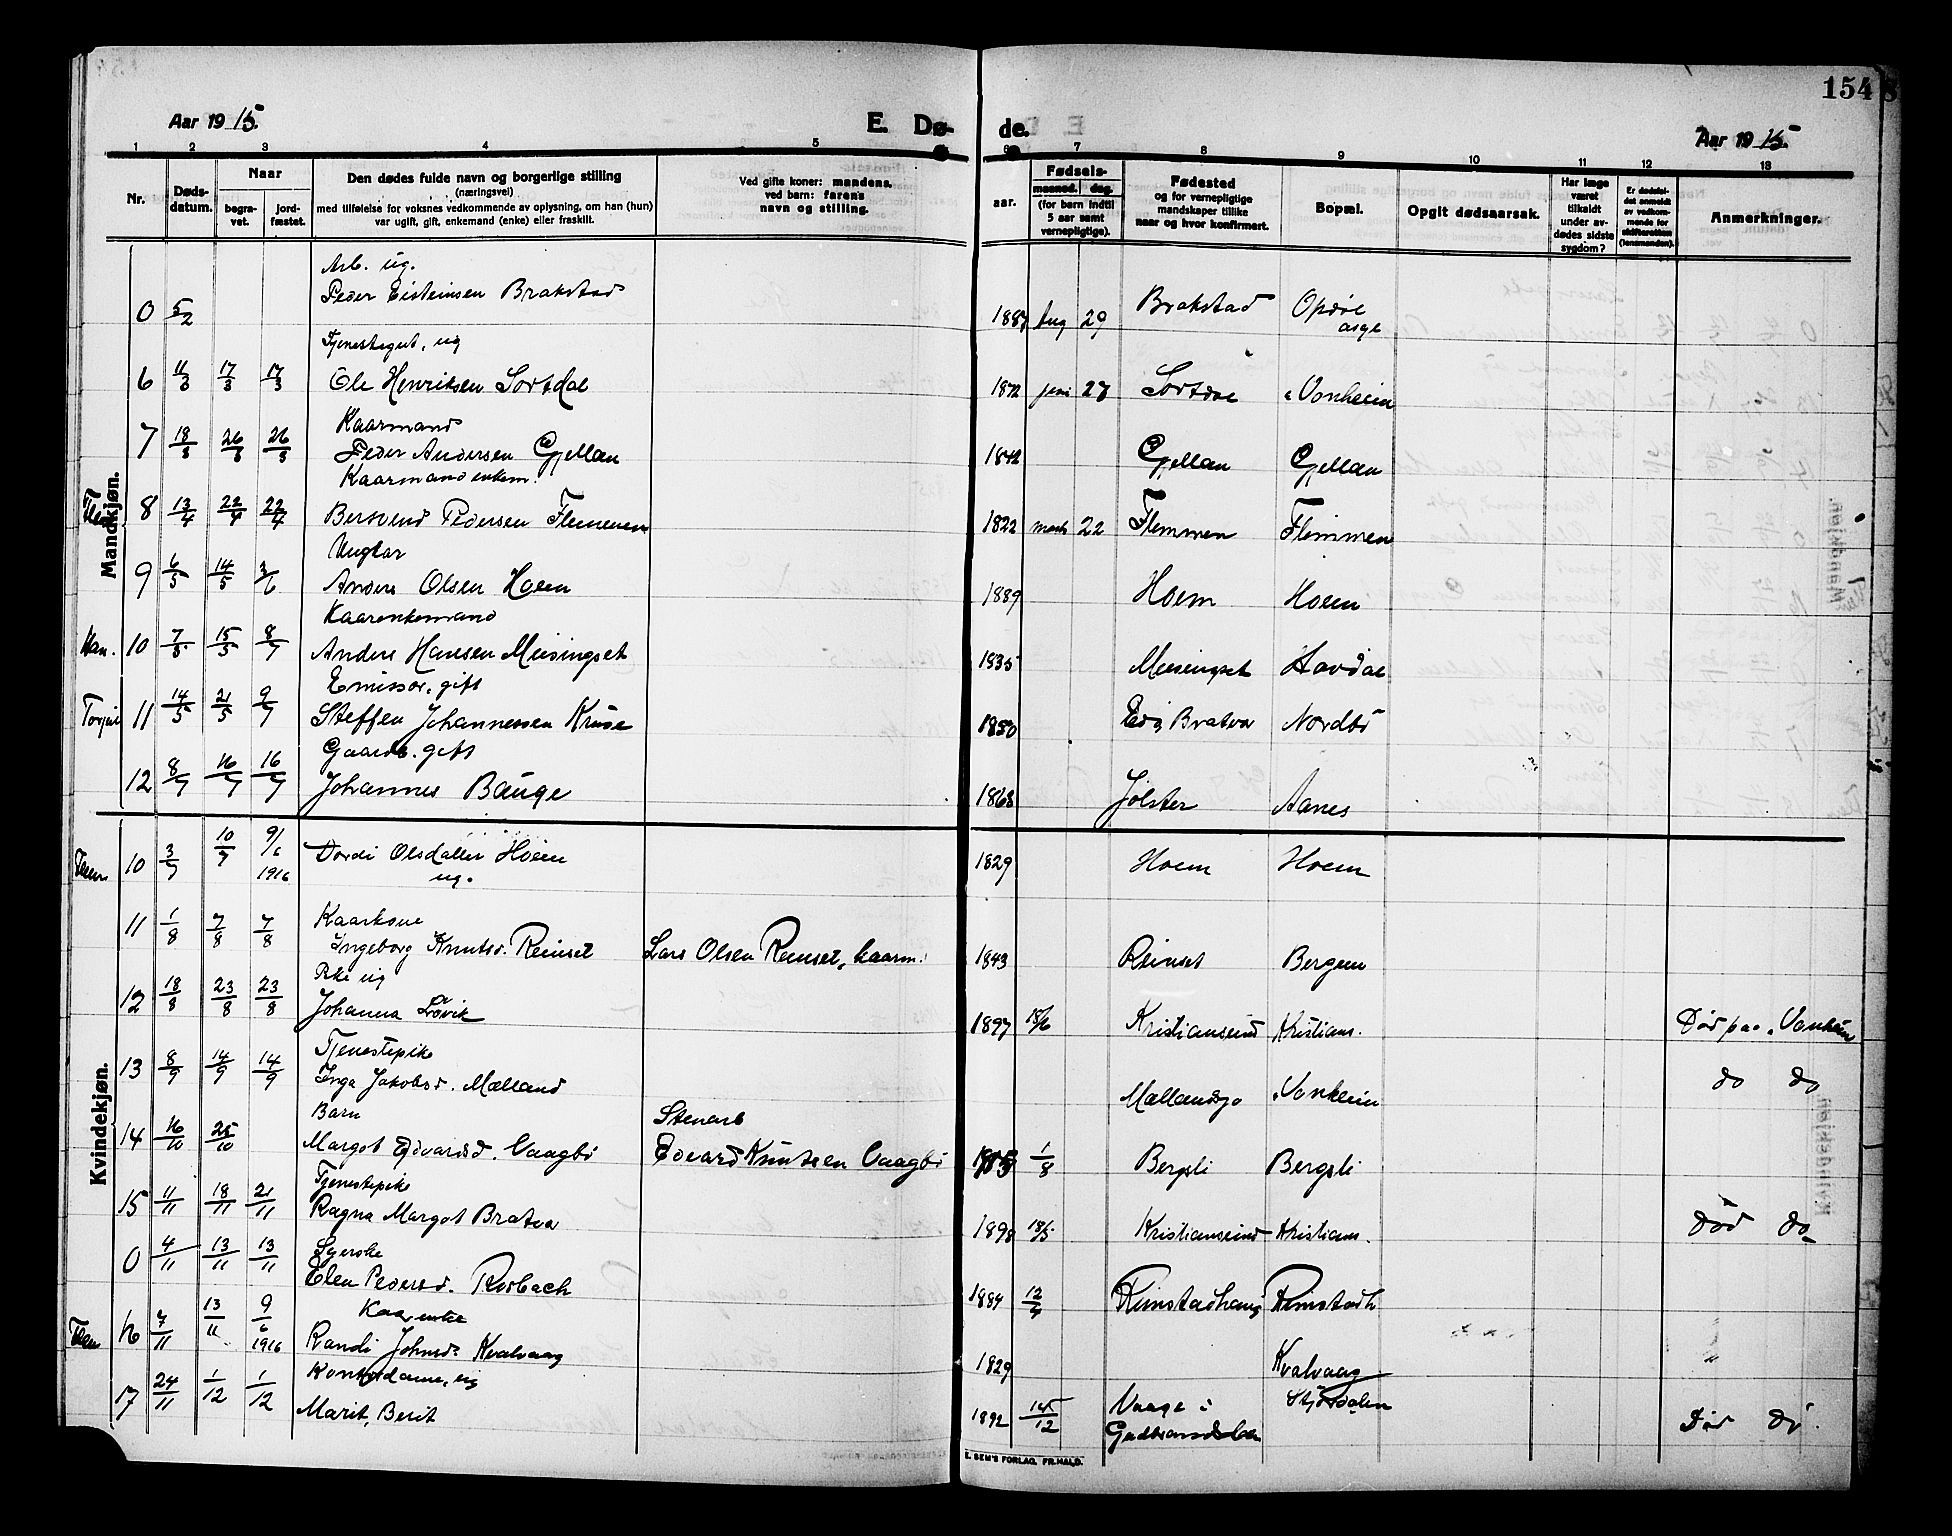 154
Aar 1915.
E. Dø- de.
Aar 1915.
1 2 3 4 5 6 7 8 9 10 11 12 13
Nr.
Døds-
datum.
Naar
begra-
vet.
jord-
fæstet.
Den dødes fulde navn og borgerlige stilling
(næringsvei)
med tilføielse for voksnes vedkommende av oplysning, om han (hun)
var ugift, gift, enkemand (enke) eller fraskilt.
Ved gifte koner: mandens.
ved barn: farens
navn og stilling.
aar.
Fødsels-
maaned. dag.
(for børn indtil
5 aar samt
vernepligtige).
Fødested
og for vernepligtige
mandskaper tillike
naar og hvor konfirmert.
Bopæl.
Opgit dødsaarsak.
Har læge
været
tilkaldt
under av-
dødes sidste
sygdom?
Er dødsfal-
det anmeldt
av vedkom-
mende for
skifteretten
(lensmanden).
Anmerkninger.
Mandkjøn.
Arb. ug.
0 5/2 Peder Eisteinsen Brakstad 1887 Aug 29 Brakstad Opdøl
Tjenestegut, ug
6 11/3 17/3 17/3 Ole Henriksen Sortdal 1872 juni 27 Sortdal Vonheim
Kaarmand
7 18/3 26/3 26/3 Peder Andersen Gjellan 1842 Gjellan Gjellan
Kaarmand enkem.
8 13/4 22/4 22/4 Bersvend Pedersen Flemmen 1822 marts 22 Flemmen Flemmen
Ungkar
9 6/5 14/5 3/6 Anders Olsen Hoem 1889 Hoem Hoem
Kaarenkemand
10 7/5 15/5 8/7 Anders Hansen Meisingset 1835 Meisingset Havdal
Emissær, gift
11 14/5 21/5 9/7 Steffen Johannessen Kruse 1850 Edø, Bratvær Nordbø
Gaardb. gift
12 8/7 16/7 16/7 Johannes Bauge 1863 Jølster Aanes
Kvindekjøn.
10 3/7 10/7 9/6 1916 Dordi Olsdatter Hoem 1829 Hoem Hoem
ug.
Kaarkone
11 1/8 7/8 7/8 Ingeborg Knutsd. Reinset Lars Olsen Reinset, kaarm. 1843 Reinset Bergem
Pike ug
12 18/8 23/8 23/8 Johanna Løvik 1897 18/6 Kristianssund Kristians. Død paa Vonheim
Tjenestepike
13 8/9 14/9 14/9 Inga Jakobsd. Mælland Vonheim do do
Barn Stenarb
14 16/10 25/10 Margot Edvardsd. Vaagbø Edvard Knutsen Vaagbø 1915 1/8 Bergsli Bergsli
Tjenestepike
15 11/11 18/11 21/11 Ragna Margot Bratvær 1898 13/5 Kristianssund Kristians. Død do
Syerske
0 4/11 13/11 13/11 Elen Pedersd. Rosbach 1884 12/7 Rimstadhaug Rimstadh
Kaarenke
16 7/11 13/11 9/6 1916 Randi Johnsd. Kvalvaag 1829 Kvalvaag "
Kontordame, ug
17 24/11 1/12 1/12 Marit, Berit 1892 15/12 Vaage i Stjørdalen Død do
Gudbrandsdalen
E. SEM'S FORLAG, FR.HALD.